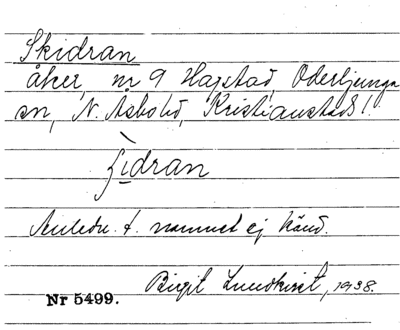 Skidran
åker, nr 9 Hagstad, Oderljunga
sn, N. Åsbohd, Kristianstads l.
ʃìdran
Anledn. t. namnet ej känd.
Birgit Lundkvist, 1938.
Nr 5499.